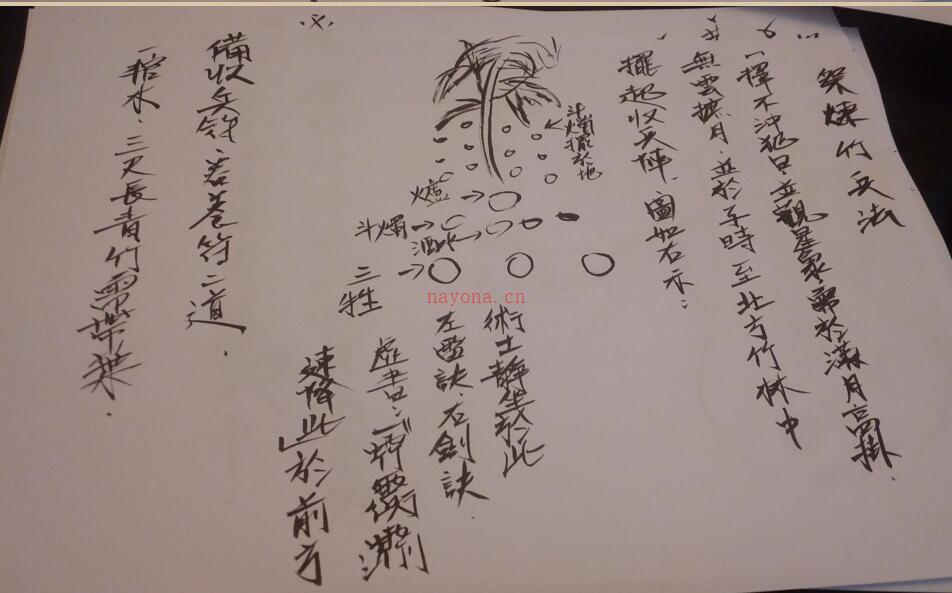 祭煉竹兵法
一擇不沖犯日，並觀星象需於滿月高掛
無雲擴月，並於子時至北方竹林中
擺起收兵陣，圖如右示：
斗燭擺於地
爐
斗燭
酒水
三牲
術士靜坐於此
左雷訣，右劍訣
虛書：
速降此於前方
備收兵錢，若卷符二道．
一棺水、三尺長青竹
nayona.cn